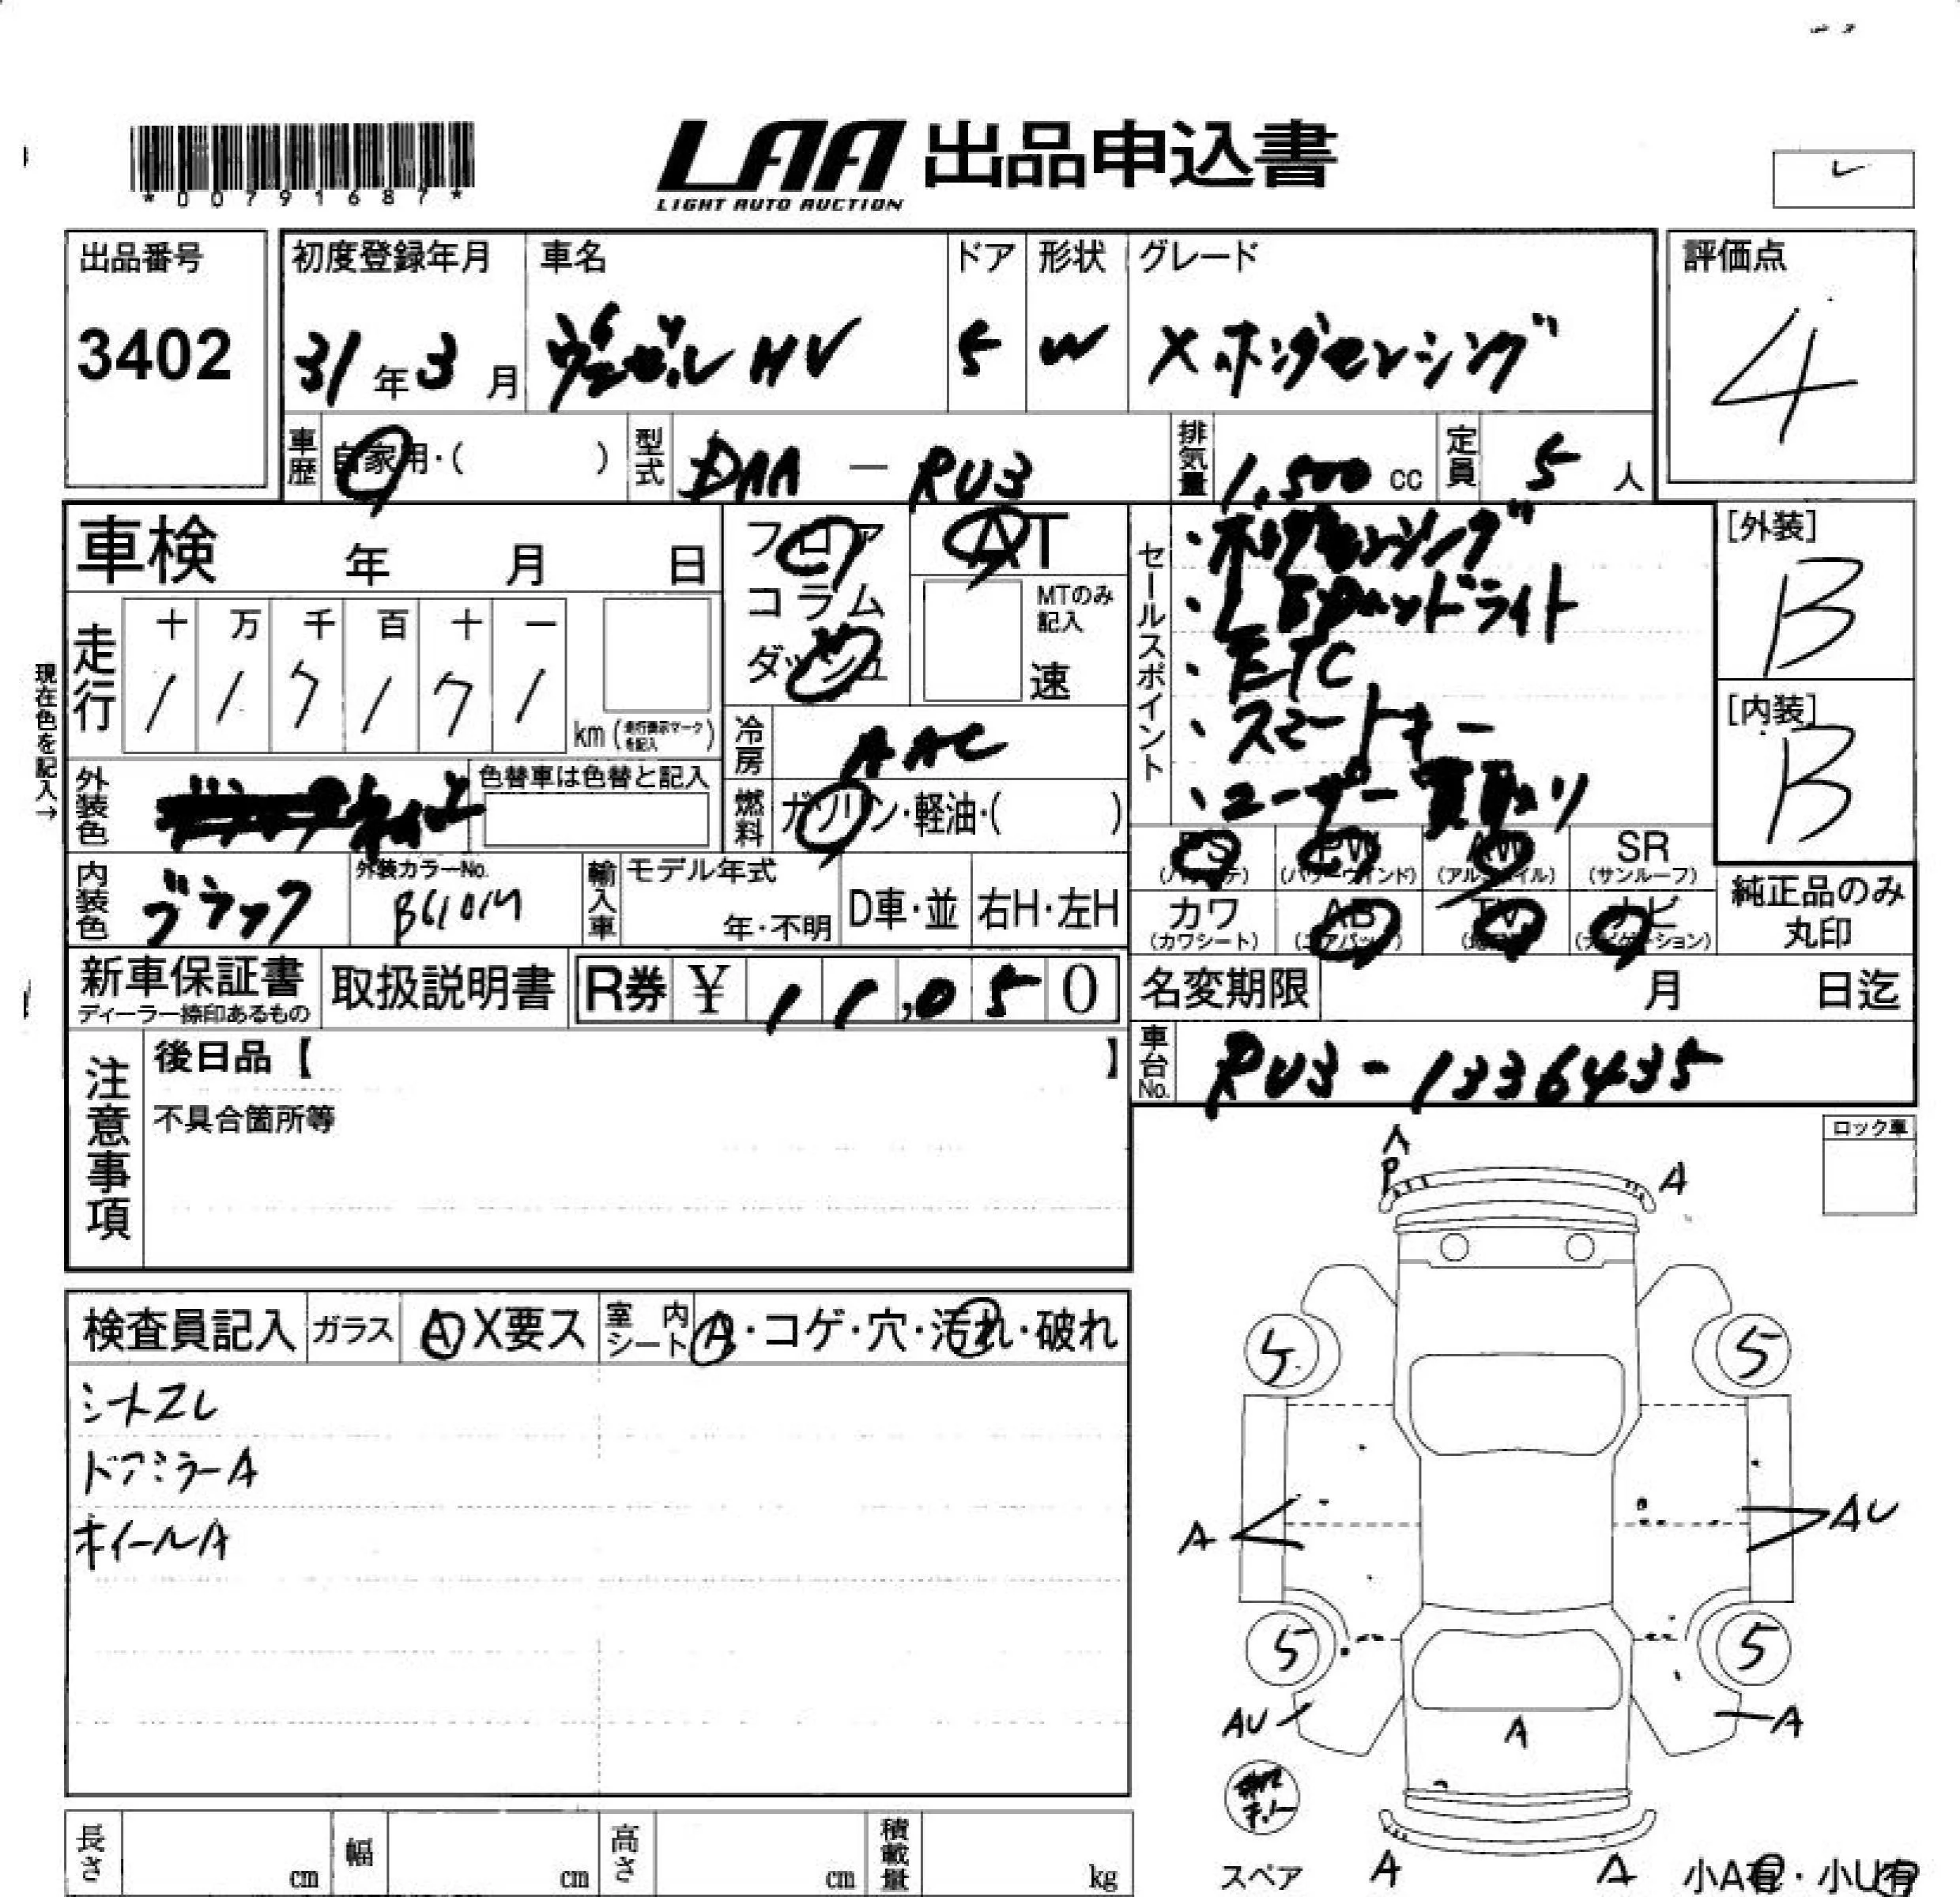 *00791687*
LAA 出品申込書
LIGHT AUTO AUCTION
出品番号
3402
初度登録年月
31年3月
車名
ヴェゼル HV
ドア
5
形状
W
グレード
X ホンダセンシング
評価点
4
車歴 自家用・( )
型式 DAA - RU3
排気量 1,500 cc
定員 5 人
車検 年 月 日
フロア
コラム
ダッシュ
AT
MTのみ記入
速
セールスポイント
・ホンダセンシング
・LEDヘッドライト
・ETC
・スマートキー
・ユーザー買取り
[外装]
B
[内装]
B
現在色を記入→
走行
十 万 千 百 十 一
km (走行表示マークを記入)
冷房 AAC
外装色
色替車は色替と記入
燃料 ガソリン・軽油・( )
内装色 ブラック
外装カラーNo.
輸入車
モデル年式
年・不明
D車・並
右H・左H
PS (パワステ)
PW (パワーウインド)
AW (アルミホイル)
SR (サンルーフ)
カワ (カワシート)
AB (エアバック)
TV
ナビ (ナビゲーション)
純正品のみ丸印
新車保証書
ディーラー捺印あるもの
取扱説明書
R券 ¥ 11,050
名変期限 月 日迄
車台No. RU3-1336435
注意事項
後日品【 】
不具合箇所等
ロック車
検査員記入
ガラス A X要ス
室内シート A・コゲ・穴・汚れ・破れ
シートスレ
ドアミラーA
ホイールA
A
P
A
5
5
A
AU
5
5
AU
A
A
スペア
A
A
小A有・小U有
長さ cm
幅 cm
高さ cm
積載量 kg